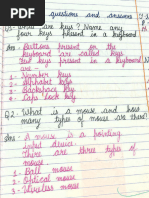 questions and answers
Q1. What are keys? Name any
four keys present in a keyboard
Ans - Buttons present on the
keyboard are called keys.
Few keys present in a keyboard
are -
1 - Number keys
2 - Alphabet keys
3 - Backspace key
4 - Caps lock key
Q2. What is a mouse and how
many types of mouse are there?
Ans - A mouse is a pointing
input device.
There are three types of
mouse.
1 - Ball mouse
2 - Optical mouse
3 - Wireless mouse